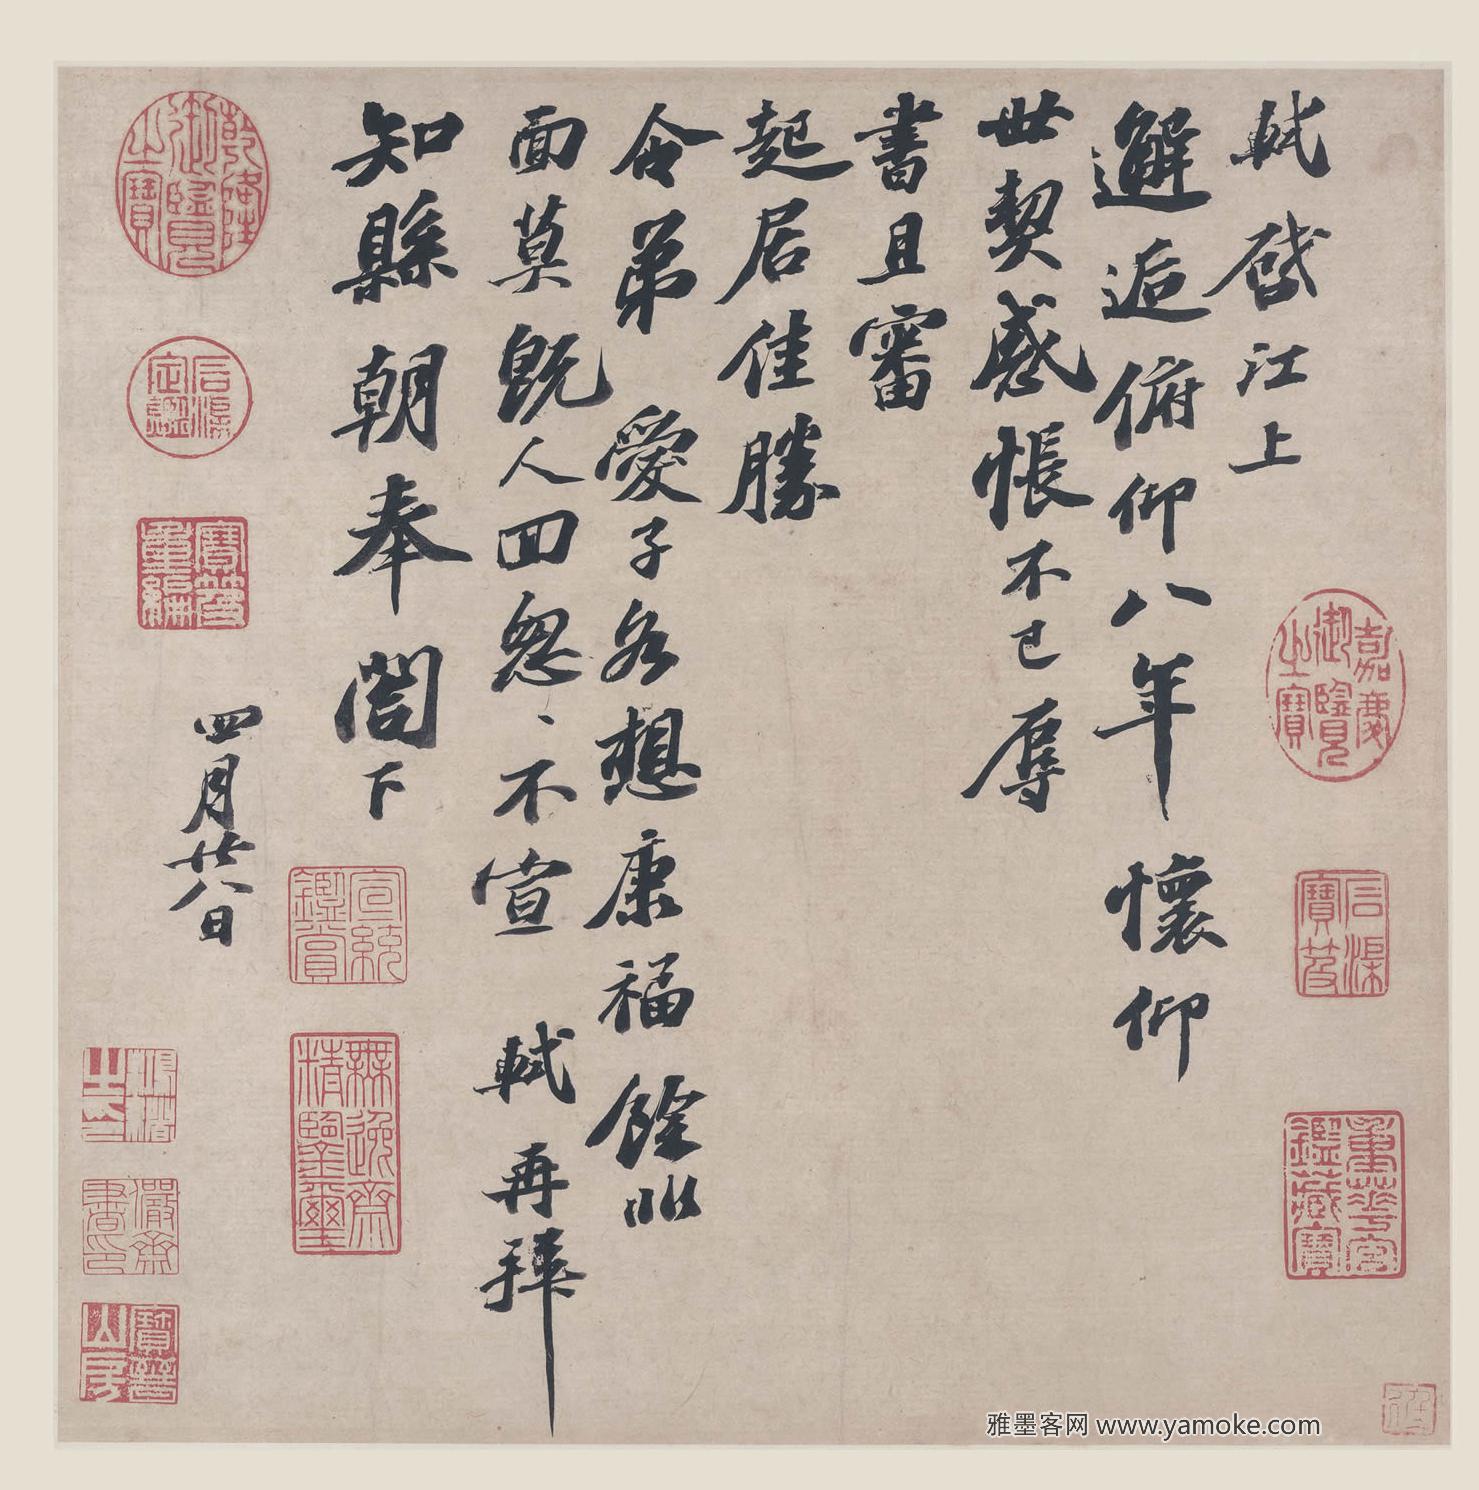 軾啓江上
邂逅俯仰八年懷仰
世契感悵不已辱
書且審
起居佳勝
令弟愛子各想康福餘非
面莫既人回怱、不宣軾再拜
知縣朝奉閤下
四月廿八日
乾隆御覽之寶
石渠定鑑
寶笈重編
宣統鑑賞
無逸齋精鑒璽
嘉慶御覽之寶
石渠寶笈
重華宮鑑藏寶
寶蘊山房
雅墨客网 www.yamoke.com